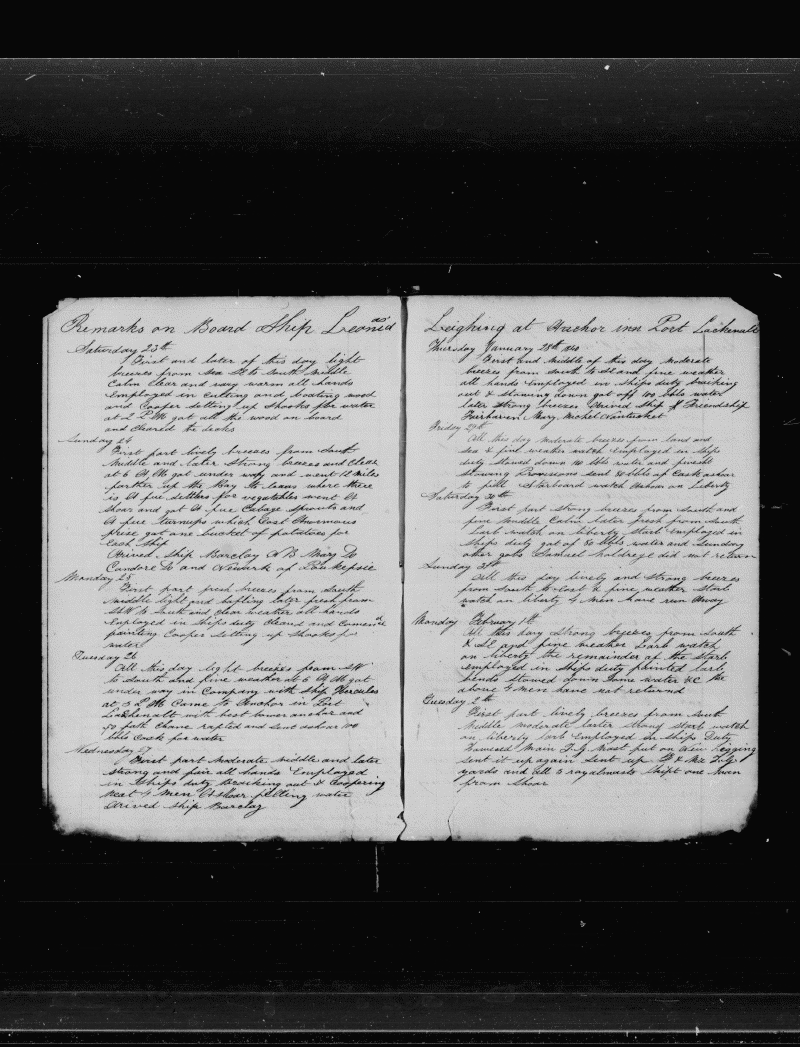 Remarks on Board Ship Leonidas
Saturday 23th
First and later of this day light
breezes from Sea St to South Middle
Calm clear and vary warm all hands
Employed in Cutting and boating wood
and Cooper setting up Shooks for water
at 2 PM got all the wood on board
and Cleared the decks
Sunday 24
First part lively breezes from South
Middle and later Strong breezes and Clear
at 6 A M got under way and went 12 miles
farther up the Bay to where there
is A fue settlers for vegatables went A
Shoar and got A fue Cabage Sprouts and
A fue turnups which Cost Enormous
prise got one bucket of potatoes for
Each Ship
Arived Ship Barclay N B Mary Do
Candore Do and Newark of Poukepsie
Monday 25
First part fresh breezes from South
Middle light and bafling later fresh from
SW to South and Clear weather all hands
Employed in Ships duty Cleand and Comence
painting Cooper Setting up Shooks for
water
Tuesday 26
All this day light breezes from SW
to South And fine weather at 6 A M got
under way in Company with Ship Hercules
at 3 P M Came to Anchor in Port
Lackenatt with best bower anchor and
50 fath Chane rafted and Sent ashoar 100
bbls Cask for water
Wednesday 27
First part Moderate middle and later
strong and fair all hands Employed
in Ships duty Breaking out & Coopering
Meat 4 men A Shoar filling water
Arived Ship Barclay
Leighing at Anchor inn Port Lackenatt
Thursday January 28th
First and Middle of this day moderate
breezes from South to SE and fine weather
all hands employed in Ships duty braking
out & Stowing down got off 100 bbls water
later strong breezes Arived Ship Friendship
Fairhaven Mary Michel Nantucket
Friday 29th
All this day moderate breezes from land and
sea & fine weather watch Employed in Ships
duty Stowed down bbls water and finesht
Stowing Provisions sent 80 bbls of Cask ashoar
to fill Starboard watch Ashoar on Liberty
Saturday 30th
First part strong breezes from South and
fine Middle Calm later fresh from South
Larb watch on liberty Starb employed in
Ships duty got of 80 bbls water and Sundrey
other gobs Samuel holdrege did not return
Sunday 31th
All this day lively and Strong breezes
from South to East & fine weather Starb
watch on liberty 4 Men have run Away
Monday February 1th
All this day Strong breezes from South
& SE and fine weather Larb watch
on liberty the remainder of the Starb
employed in Ships duty painted larb
bends Stowed down Some water &C the
above 4 men have not returnd
Tuesday 2th
First part lively breezes from South
Middle moderate later strong Starb watch
on liberty Larb Employed in Ships Duty
Main T.G. Mast put on New Rigging
Sent it up again Sent up F & Miz T.G.
yards and all 3 royalmasts Shipt one man
from Shoar